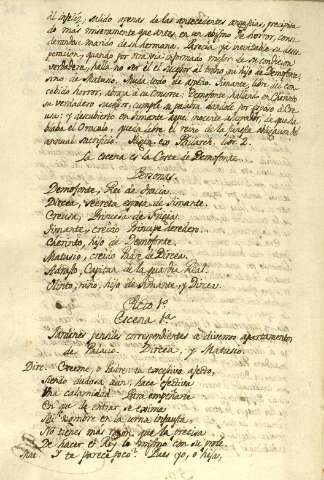 el infeliz, salido apenas de las antecedentes angustias, precipita
do mas miseramente que antes, en un abismo de horror, consi-
derandose marido de su hermana. Parecia ya inevitable su deses-
peracion, quando por otra via informado mejor de su condicion
verdadera, halla no ser él el succesor al trono, ni hijo de Demofonte,
sino de Matusio. Muda todo de aspecto. Timante, libre del con-
cebido horror, abraza à su Consorte: Demofonte hallando en Cherinto
su verdadero succesor, cumple su palabra dandole por esposo à Creu-
sa: y descubierto en Timante aquel inocente usurpador, de que ha-
blaba el Oraculo, queda libre el reino de la
annual sacrificio. Higin. ex Philarch. libr. 2.
La escena es la Corte de Demofonte.
Personas.
Demofonte, Rei de Tracia.
Dircea, secreta esposa de Timante.
Creusa, Princesa de Frigia.
Timante, creido Principe heredero.
Cherinto, hijo de Demofonte.
Matusio, creido Padre de Dircea.
Adrasto, Capitan de la guardia Real.
Olinto, niño, hijo de Timante, y Dircea.
Acto 1º
Escena 1ª
Jardines pensiles correspondientes à diversos apartamentos
de Palacio. Dircea, y Matusio.
Dirc. Creeme, o Padre: tu excesivo afecto,
siendo dudosa aun, hace efectiva
una calamidad. Para empeñarte
En que de entrar se exima
Mi nombre en la urna infausta,
No tienes mas razon, que la precisa
De hacer el Rey lo mismo con su prole.
Mat. Y te parece poco? Pues yo, o hija,